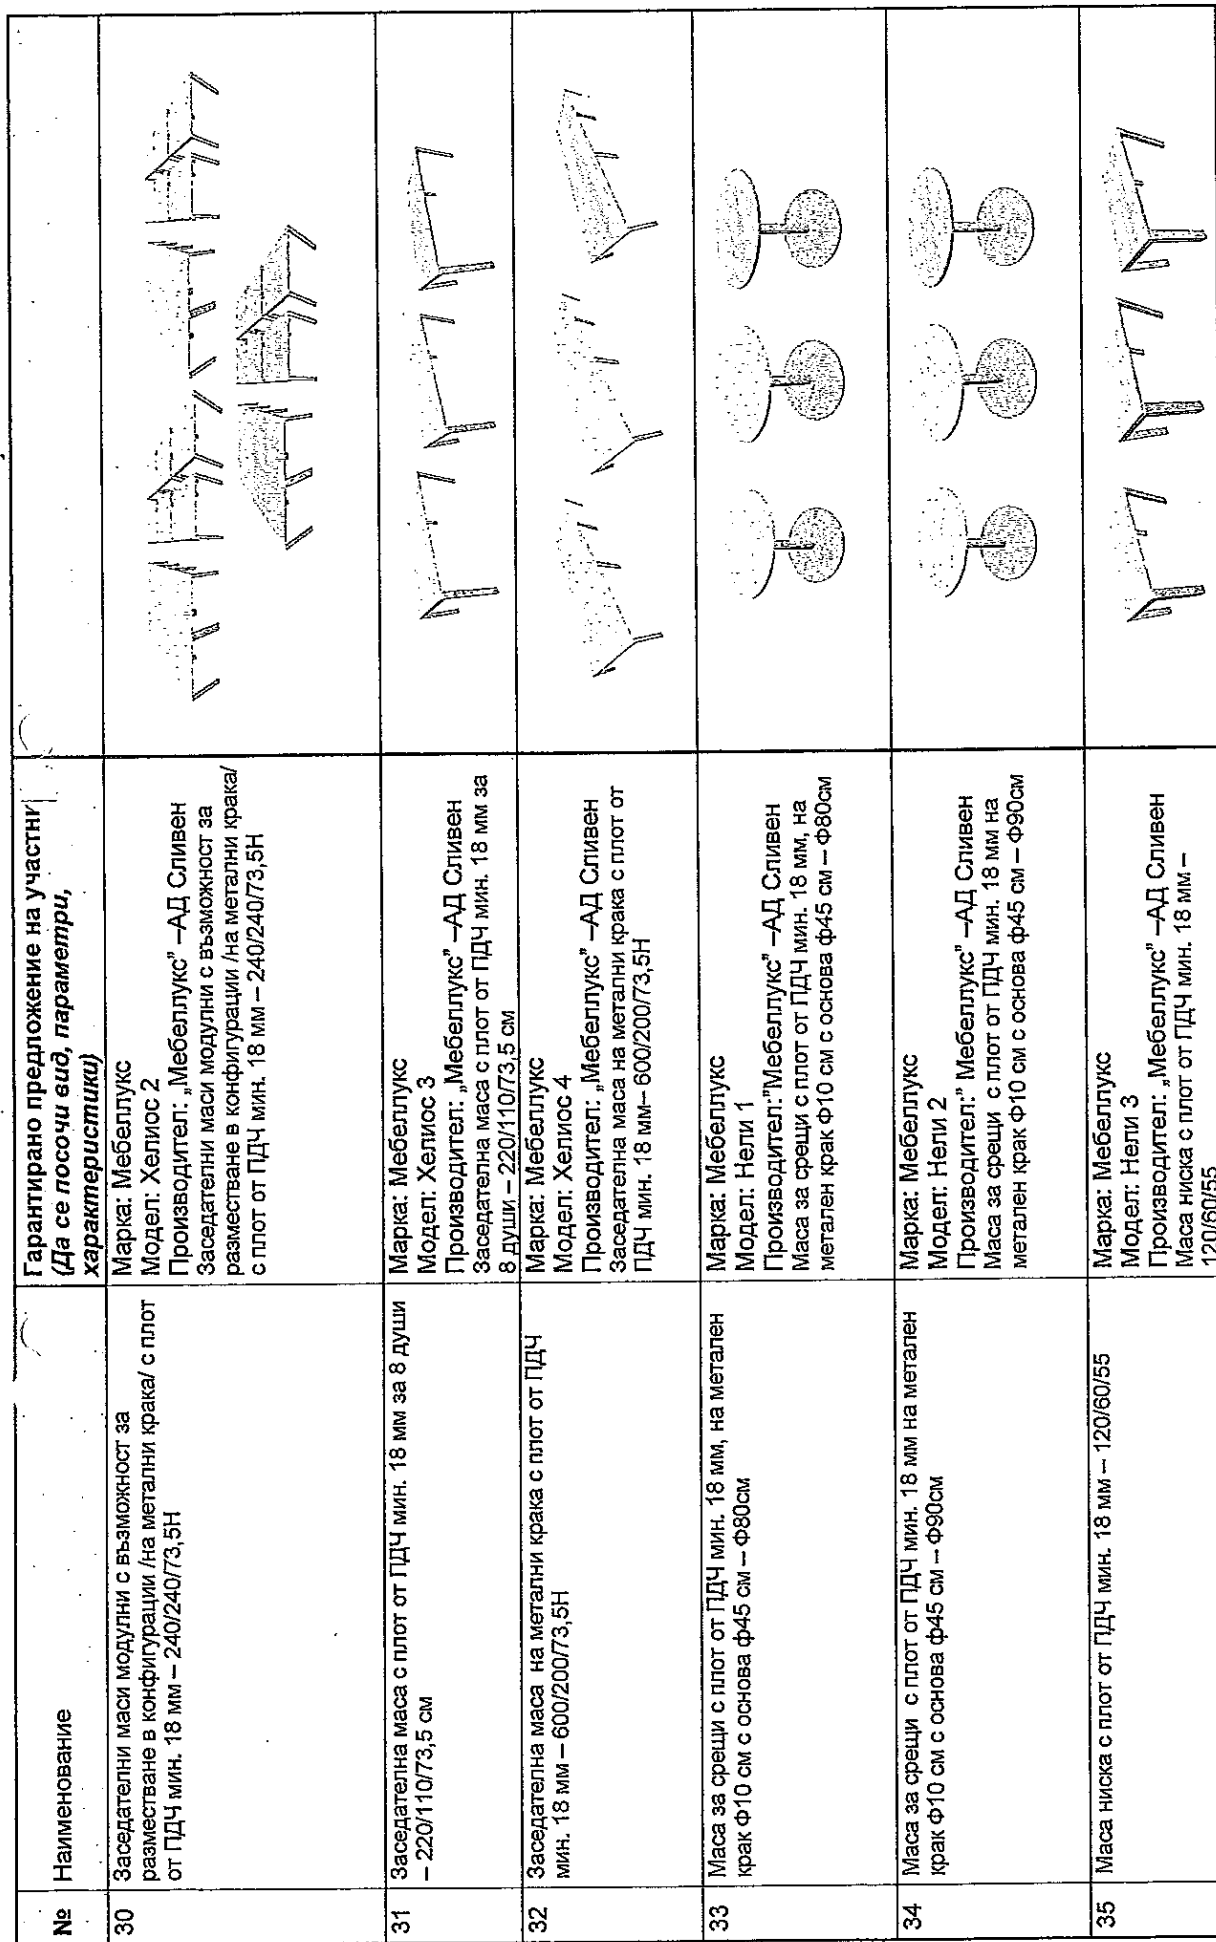 №
Наименование
Гарантирано предложение на участни
(Да се посочи вид, параметри,
характеристики)
30
Заседателни маси модулни с възможност за
разместване в конфигурации /на метални крака/ с плот
от ПДЧ мин. 18 мм – 240/240/73,5Н
Марка: Мебеллукс
Модел: Хелиос 2
Производител: „Мебеллукс” –АД Сливен
Заседателни маси модулни с възможност за
разместване в конфигурации /на метални крака/
с плот от ПДЧ мин. 18 мм – 240/240/73,5Н
31
Заседателна маса с плот от ПДЧ мин. 18 мм за 8 души
– 220/110/73,5 см
Марка: Мебеллукс
Модел: Хелиос 3
Производител: „Мебеллукс” –АД Сливен
Заседателна маса с плот от ПДЧ мин. 18 мм за
8 души – 220/110/73,5 см
32
Заседателна маса на метални крака с плот от ПДЧ
мин. 18 мм – 600/200/73,5Н
Марка: Мебеллукс
Модел: Хелиос 4
Производител: „Мебеллукс” –АД Сливен
Заседателна маса на метални крака с плот от
ПДЧ мин. 18 мм– 600/200/73,5Н
33
Маса за срещи с плот от ПДЧ мин. 18 мм, на метален
крак Ф10 см с основа ф45 см – Ф80см
Марка: Мебеллукс
Модел: Нели 1
Производител:”Мебеллукс” –АД Сливен
Маса за срещи с плот от ПДЧ мин. 18 мм, на
метален крак Ф10 см с основа ф45 см – Ф80см
34
Маса за срещи с плот от ПДЧ мин. 18 мм на метален
крак Ф10 см с основа ф45 см – Ф90см
Марка: Мебеллукс
Модел: Нели 2
Производител:” Мебеллукс” –АД Сливен
Маса за срещи с плот от ПДЧ мин. 18 мм на
метален крак Ф10 см с основа ф45 см – Ф90см
35
Маса ниска с плот от ПДЧ мин. 18 мм – 120/60/55
Марка: Мебеллукс
Модел: Нели 3
Производител: „Мебеллукс” –АД Сливен
Маса ниска с плот от ПДЧ мин. 18 мм –
120/60/55